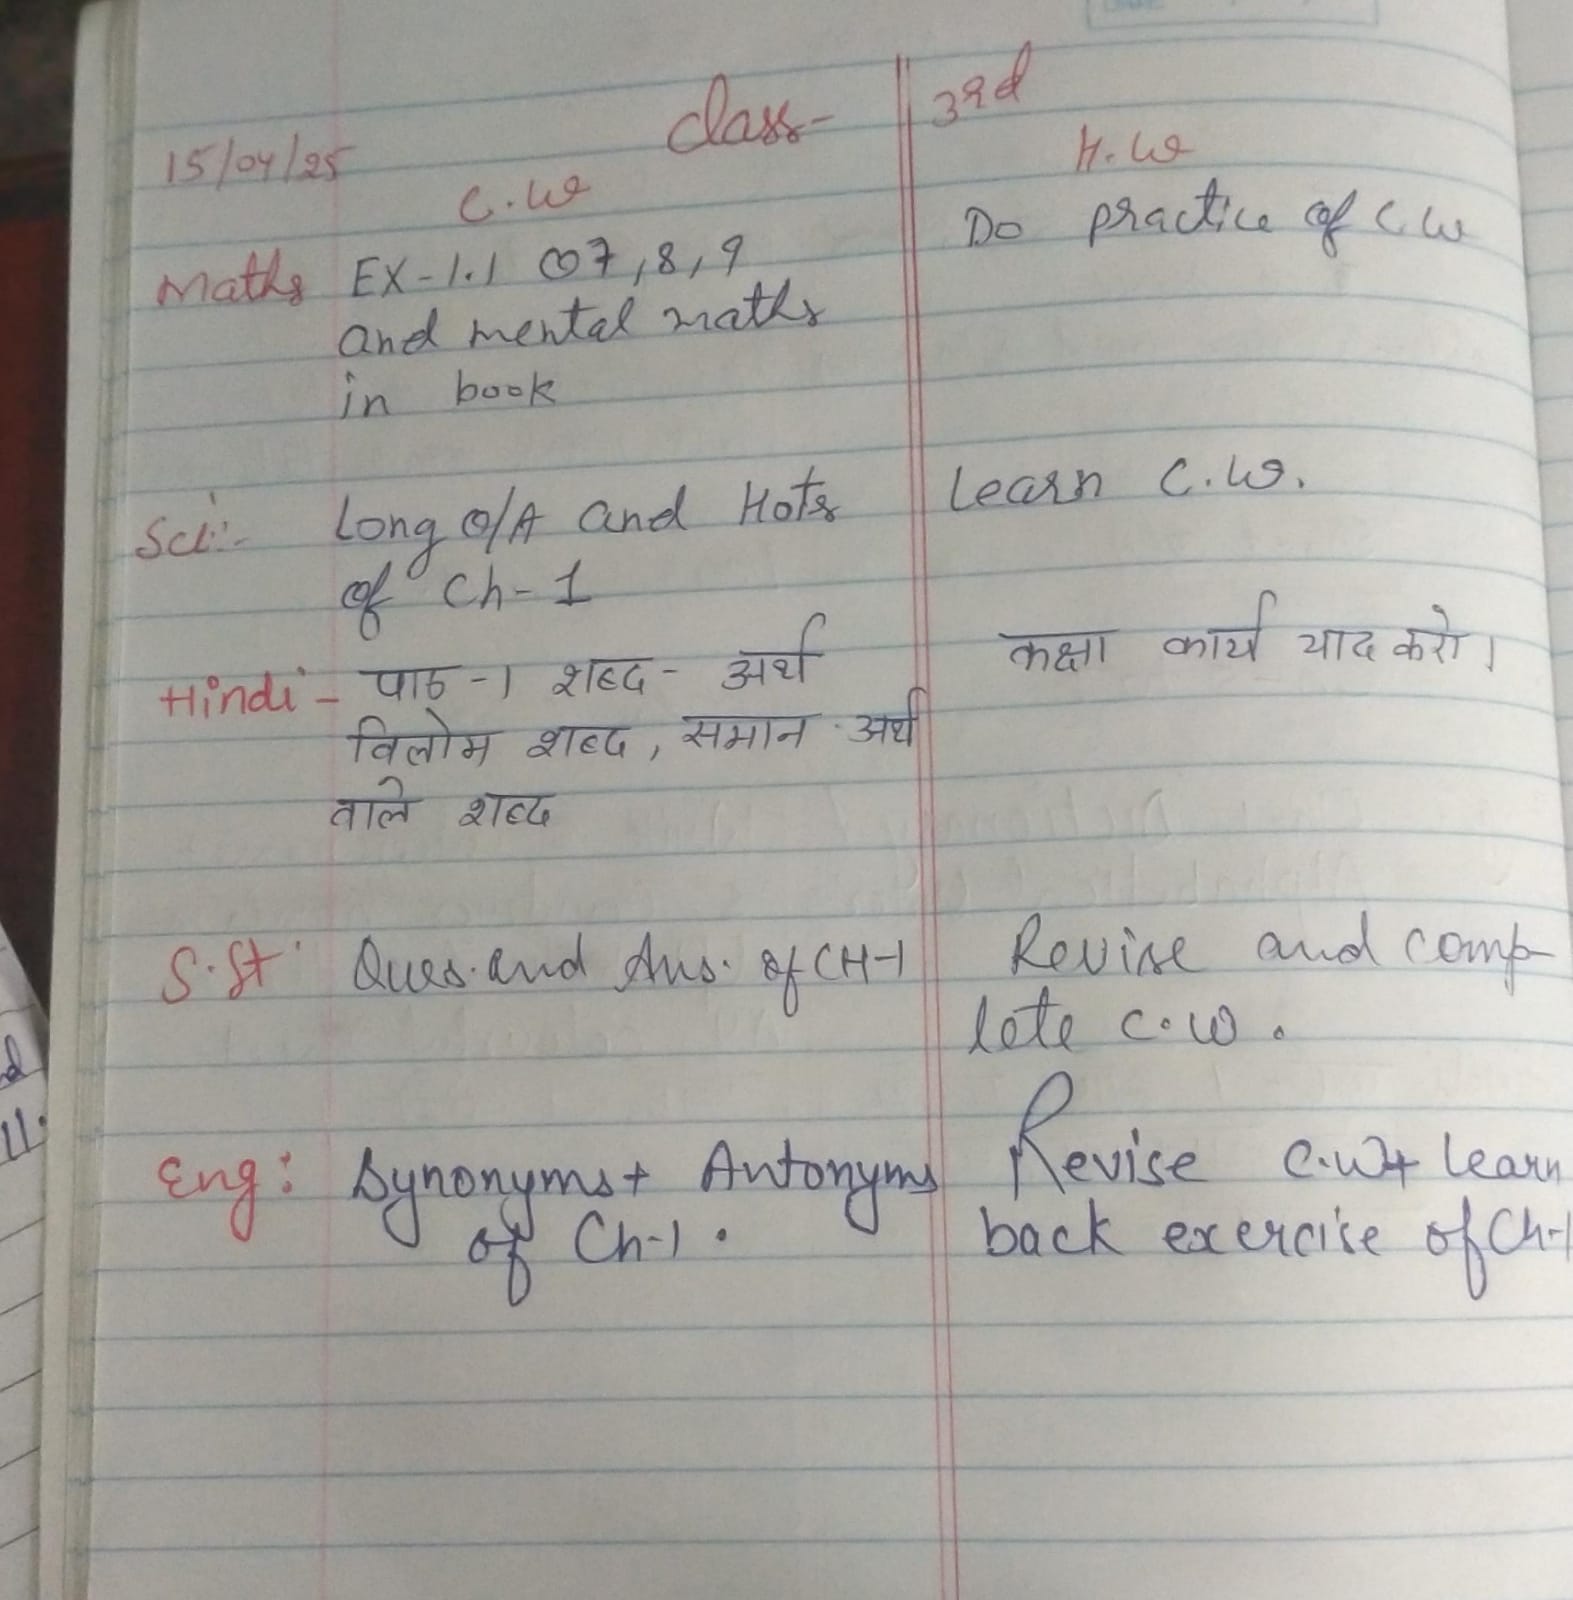 Class- 3rd
15/04/25
C.W
H.W
Maths EX-1.1 Q7,8,9
and mental maths
in book
Do practice of C W
Sci:- Long Q/A and Hots
of Ch-1
Learn C.W.
Hindi - पाठ -1 शब्द - अर्थ
विलोम शब्द, समान अर्थ
वाले शब्द
कक्षा कार्य याद करो।
S.St Ques. and Ans. of CH-1
Revise and comp-
lete C.W.
Eng: Synonyms + Antonyms
of Ch-1.
Revise C.W + learn
back exercise of Ch-1